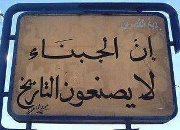 إن الجبناء
لا يصنعون التاريخ